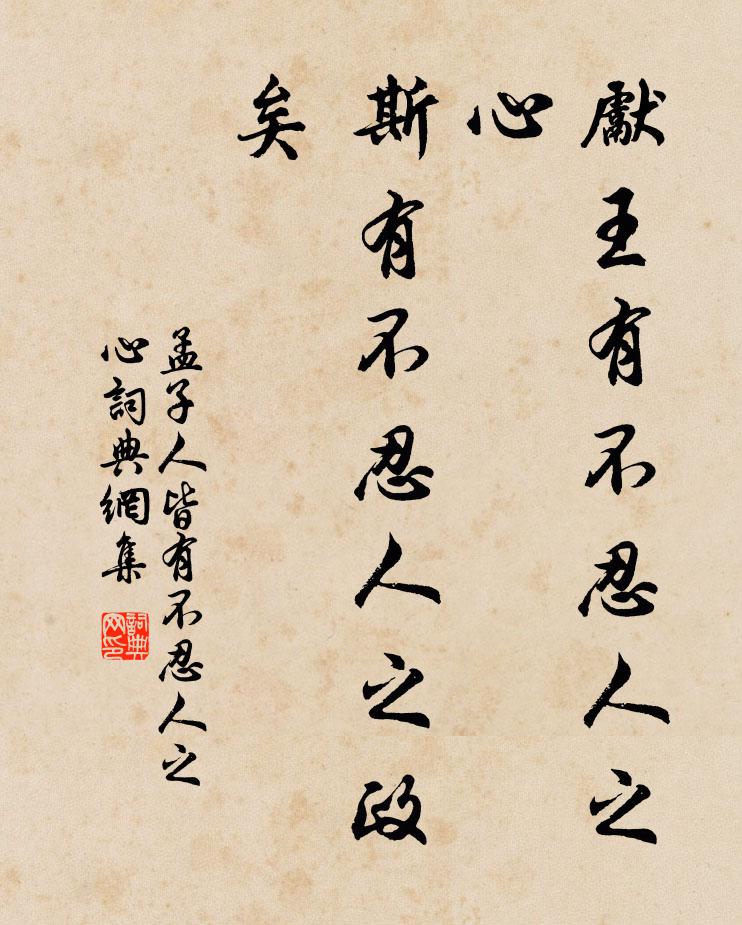 獻王有不忍人之
心
斯有不忍人之政
矣
孟子人皆有不忍人之
心詞典網集
詞典
网印